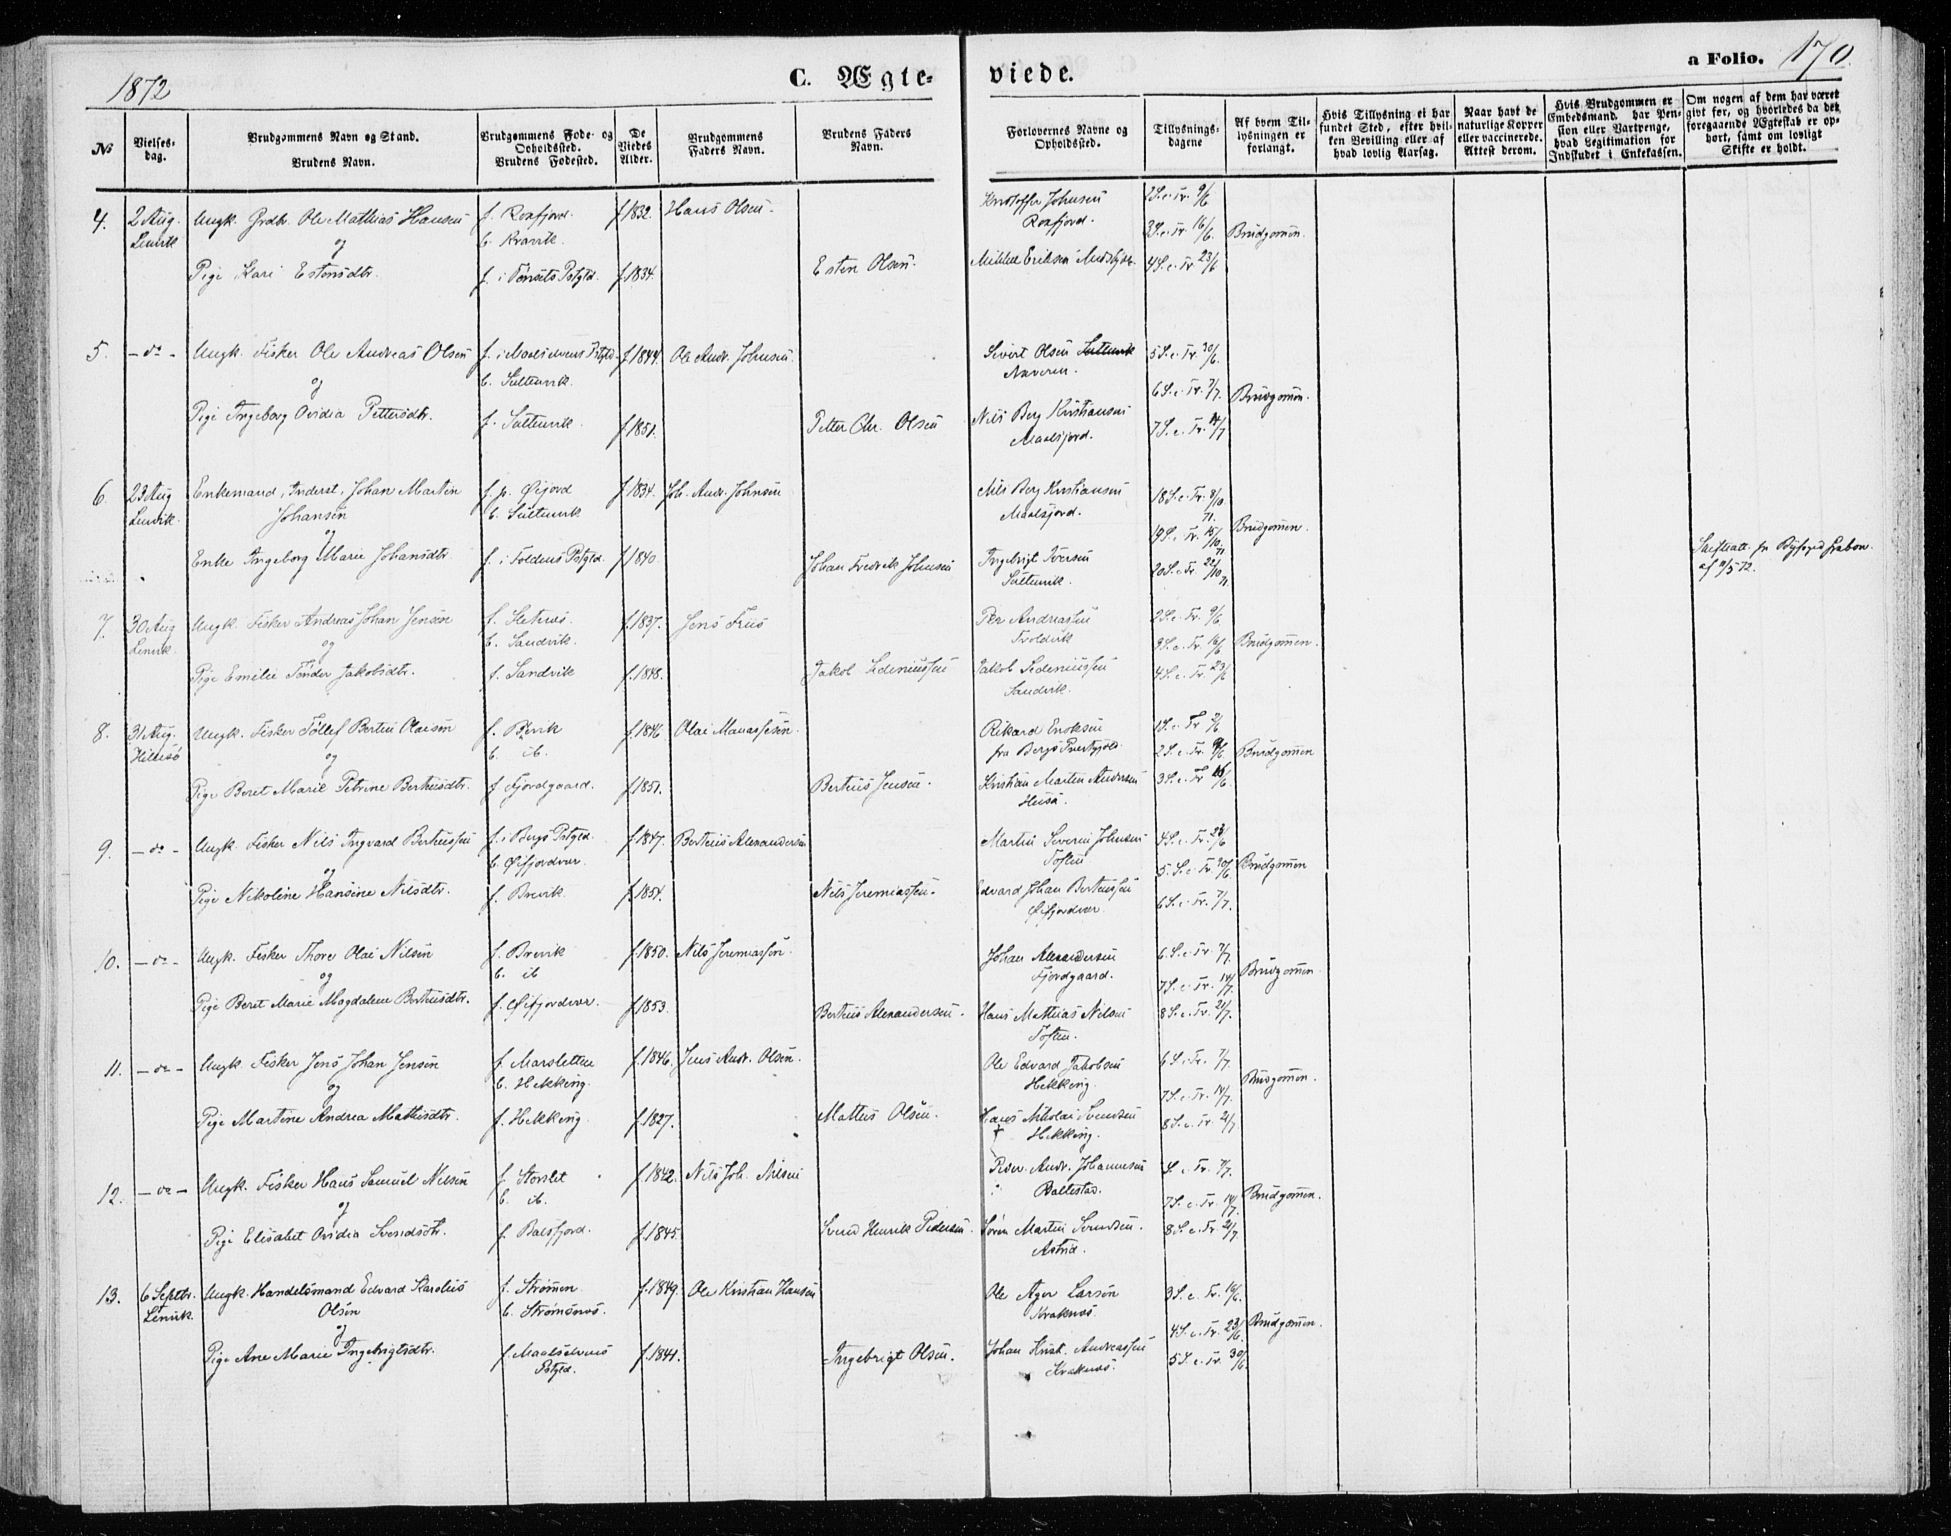 1872
C. Ægte-
viede.
a Folio. 170.
No
Vielses-
dag.
Brudgommens Navn og Stand.
Brudens Navn.
Brudgommens Føde- og
Opholdssted.
Brudens Fødested.
De
Viedes
Alder.
Brudgommens
Faders Navn.
Brudens Faders
Navn.
Forlovernes Navne og
Opholdssted.
Tillysnings-
dagene
Af hvem Til-
lysningen er
forlangt.
Hvis Tillysning ei har
fundet Sted, efter hvil-
ken Bevilling eller af
hvad lovlig Aarsag.
Naar havt de
naturlige Kopper
eller vaccinerede.
Attest derom.
Hvis Brudgommen er
Embedsmand, har Pen-
sion eller Vartpenge,
hvad Legitimation for
Indskudet i Enkekassen.
Om nogen af dem har været
gift før, og hvorledes da det
foregaaende Ægteskab er op-
hørt, samt om lovligt
Skifte er holdt.
4. 2 Aug. Ungk. Grdbr. Ole Mathias Hansen f. Roxfjord. f. 1832. Hans Olsen. Kristoffer Johnsen 2 S. e. Tr. 9/6
Lenvik og b. Kravik. Roxfjord. 3 S. e. Tr. 16/6. Brudgommen.
Pige Kari Estensdtr. f. i Tønsets Pstgld. f. 1834. Esten Olsen. Mikkel Eriksen 4 S. e. Tr. 23/6
5. - do - Ungk. Fisker Ole Andreas Olsen f. i Maalselvens Pstgld. f. 1844. Ole Andr. Johnsen. Sivert Olsen 5 S. e. Tr. 30/6.
og b. Sultenvik. 6 S. e. Tr. 7/7. Brudgommen.
Pige Ingeborg Ovidia Pettersdtr. f. Sultenvik f. 1851. Petter Chr. Olsen Nils Berg Kristiansen 7 S. e. Tr. 14/7
Maalsfjord.
6. 23 Aug Enkemand, Inderst, Johan Martin f. p. Gifjord f. 1834. Joh. Andr. Johnsen Nils Berg Kristiansen 18 S. e. Tr. 8/10
Lenvik. Johansen b. Sultenvik Maalsfjord. 71.
og 19 S. e. Tr. 15/10 71 Brudgommen.
Enke Ingeborg Marie Johansdtr. f. i Foldens Pstgld. f. 1840. Johan Fredrik Johnsen Ingebrigt Iversen 20 S. e. Tr. 22/10 71. Skifteatt. fr.
Sultenvik.
7. 30 Aug Ungk. Fisker Andreas Johan Jensen f. Sletnes. f. 1837. Jens Friis Per Andreassen 2 S. e. Tr. 9/6.
Lenvik og b. Sandvik. Troldvik 3 S. e. Tr. 16/6 Brudgommen.
Pige Emilie Tønder Jakobsdtr. f. Sandvik f. 1848. Jakob Sedeniussen Jakob Sedeniussen 4 S. e. Tr. 23/6
Sandvik.
8. 31 Aug. Ungk. Fisker Tollef Bertin Olaisen f. Brevik f. 1846 Olai Manassesen. Rikard Enoksen 1 S. e. Tr. 2/6
Hillesø og b. ib. fra Bergs Præstegjeld. 2 S. e. Tr. 9/6 Brudgommen
Pige Beret Marie Petrine Berteusdtr. f. Fjordgaard. f. 1851. Berteus Jensen. Kristian Martin Andersen 3 S. e. Tr. 16/6.
Husø.
9. - do - Ungk. Fisker Nils Ingvard Berteussen f. i Bergs Pstgld. f. 1847. Berteus Alexandersen Martin Severin Johnsen 4 S. e. Tr. 23/6
og b. Øifjordvær. Toften 5. S. e. Tr. 30/6 Brudgommen
Pige Nikoline Hansine Nilsdtr. f. Brevik. f. 1854. Nils Jeremiassen. Edvard Johan Berteussen 6 S. e. Tr. 7/7.
Øifjordvær.
10. - do - Ungk. Fisker Thore Olai Nilsen f. Brevik f. 1850. Nils Jeremiassen. Johan Alexandersen 6. S. e. Tr. 7/7.
og b. ib Fjordgaard. 7 S. e. Tr. 14/7. Brudgommen.
Pige Beret Marie Magdalene Berteusdtr. f. Øifjordvær. f. 1853. Berteus Alexandersen. Hans Mathias Nilsen 8 S. e. Tr. 21/7.
Toften.
11. - do - Ungk. Fisker Jens Johan Jensen f. Marsletten f. 1846. Jens Andr. Olsen. Ole Edvard Jakobsen 6 S. e. Tr. 7/7.
og b. Hekking. Hekking. 7 S. e. Tr. 14/7. Brudgommen.
Pige Martine Andrea Mathisdtr. f. Hekking f. 1827. Mattis Olsen. Hans Nikolai Svendsen 8 S. e. Tr. 21/7
Hekking.
12. - do - Ungk. Fisker Hans Samuel Nilsen f. Storslet f. 1842. Nils Joh. Nilsen Peder Andr. Johannesen S. e. Tr. 7/7.
og b. ib. Baltestad. 7 S. e. Tr. 14/7. Brudgommen.
Pige Elisabet Ovidia Svendsdtr. f. Balsfjord. f. 1845. Svend Henrik Pedersen. Søren Martin Svendsen. 8 S. e. Tr. 21/7
Astrid.
13. 6 Septbr. Ungk. Handelsmand Edvard Karolius f. Strømmen f. 1849. Ole Kristian Hansen Ole Ager Larsen 3 S. e. Tr. 16/6.
Lenvik. Olsen b. Strømsnes. Kraknæs. 4 S. e. Tr. 23/6. Brudgommen.
og
Pige Ane Marie Ingebrigtsdtr. f. Maalselvens f. 1841. Ingebrigt Olsen. Johan Krist. Andreassen 5 S. e. Tr. 30/6.
Pstgld. Kraknæs.